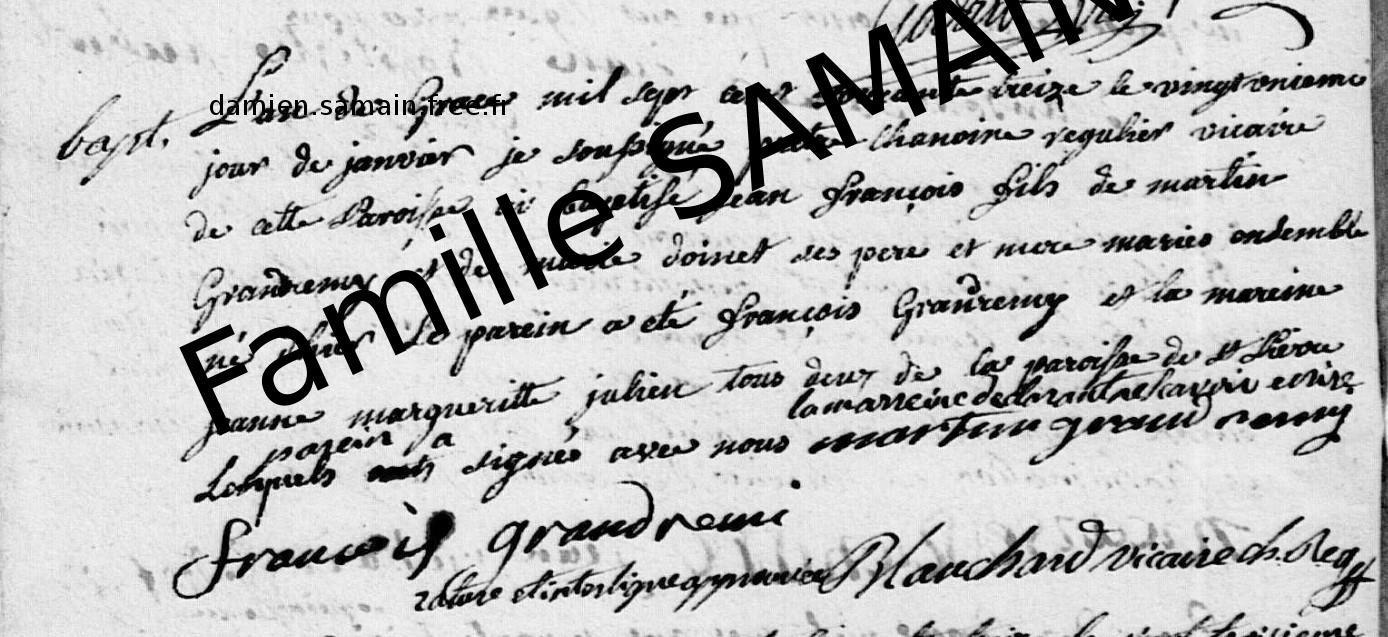 bapt. L'an de Grace mil sept cent soixante treize le vingt onzieme
jour de janvier je soussigné pretre Chanoine regulier vicaire
de cette Paroisse ai baptisé Jean françois fils de martin
Grandremy et de marie doinet ses pere et mere mariés ensemble
né le parein a eté françois Grandremy et la mareine
jeanne margueritte julien tous deux de la paroisse de St
la marreine declarant ne scavoir ecrire
parein a
Lesquels signés avec nous martin grand remy
francois grandremi
rature et interligne approuvée Blanchard vicaire ch. Reg
damien.samain.free.fr
Famille SAMAIN